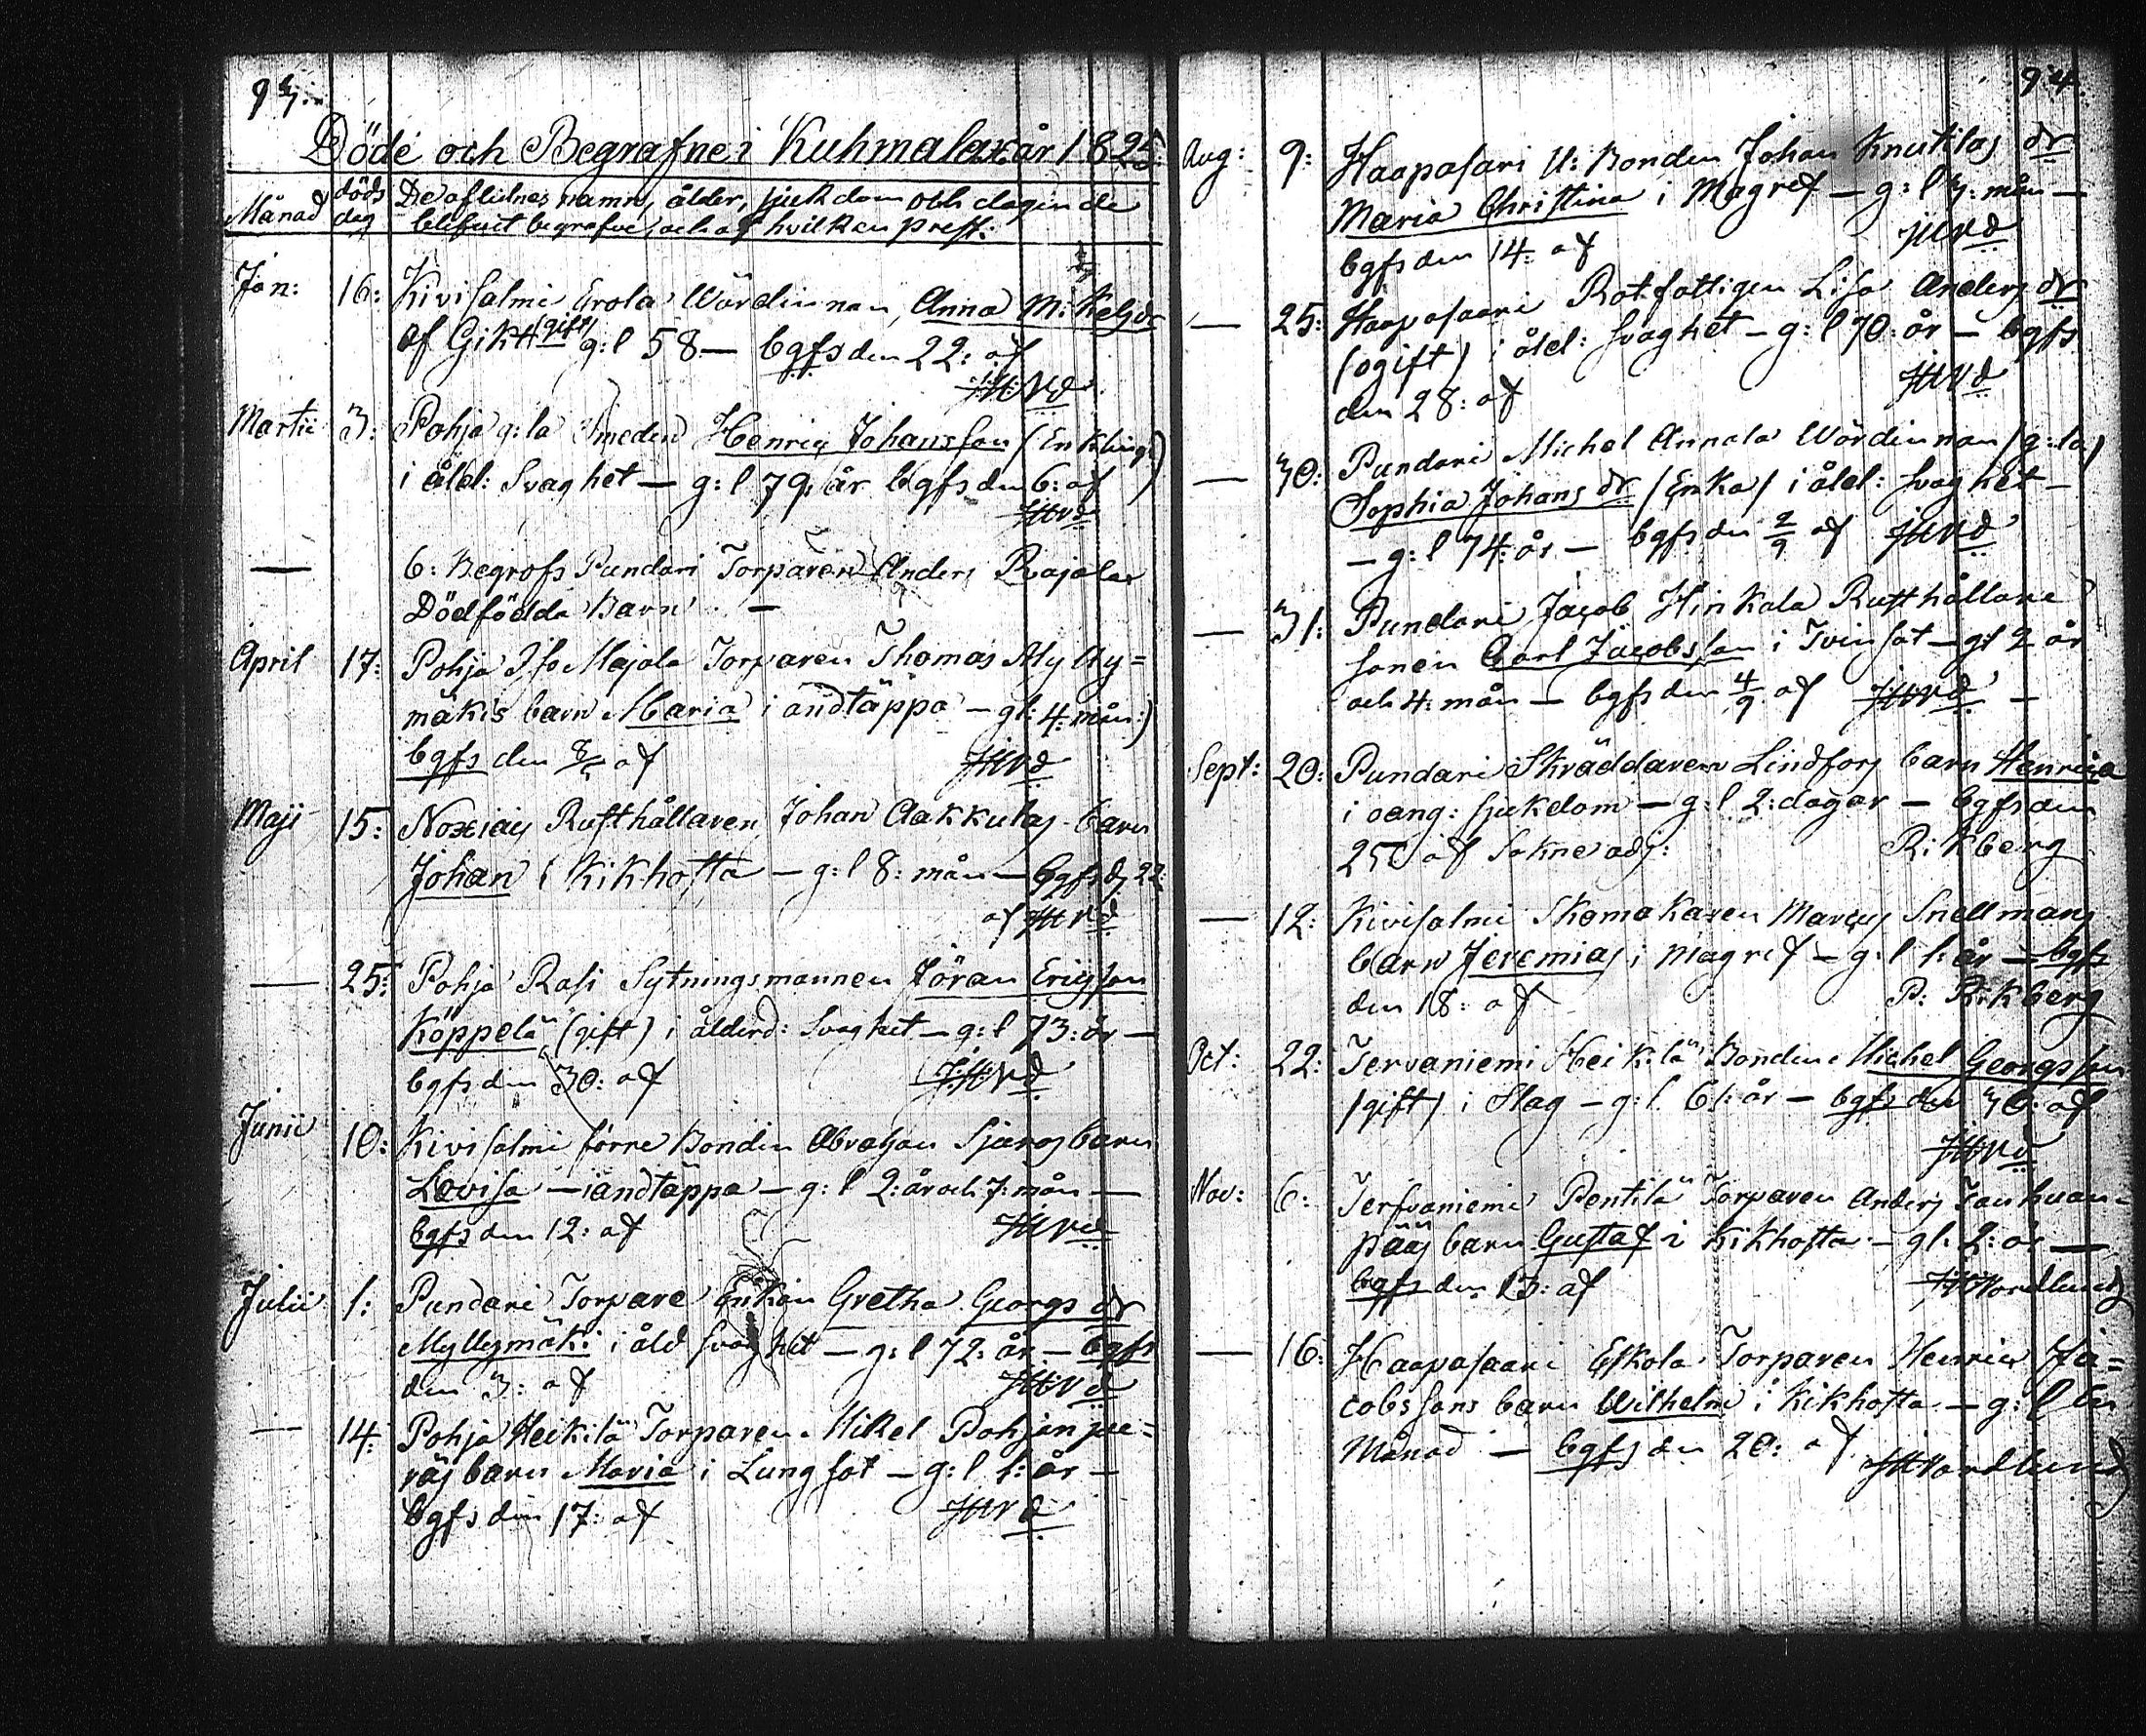 93.
Döde och Begrafne i Kuhmalax år 1825.
Månad
döds dag
De aflidnes namn, ålder, sjukdom och dagen de
blifvit begrafne, och af hvilken prest:
Jan: 16: Kivisalmi Erola Värdinnan, Anna Mickelsdr
af Gikt (gift) g:l 58 — bgfs den 22: af
JHNd
Martii 3: Pohja g:la Smeden Henric Johansson (Enkling)
i åld: Svaghet — g:l 79 år bgfs den 6: af
JHNd
— 6: Begrofs Pundari Torparen Anders Rajalas
Dödfödda Barn —
April 17: Pohja Iso Majala Torparen Thomas Mylly=
mäkis barn Maria i andtäppa — gl: 4: mån:)
bgfs den 8/5 af JHNd
Maji 15: Rusthållaren Johan Aakkulas barn
Johan i Kikhosta — g:l 8: mån — bgfs d, 22:
af JHNd
— 25: Pohja Rasi Sytningsmannen Jöran Ericsson
Köppelä (gift) i ålderd: Svaghet — g:l 73: år —
bgfs den 30: af JHNd
Junii 10: Kivisalmi förre Bonden Abraham barn
Lovisa — i andtäppa — g:l 2: år och 7: mån —
bgfs den 12: af JHNd
Julii 1: Pundari Torpare Enkan Gretha Georgs dr
Myllymäki i åld Svaghet — g:l 72: år — bgfs
den 3: af JHNd
— 14: Pohja Heikilä Torparen Mikel Pohjanpe=
räs barn Maria i Lungsot — g:l 1: år —
bgfs den 17: af JHNd
94
Aug: 9: Haapasari U: Bonden Johan Knutilas dr
Maria Christina i Magref — g:l 3: mån —
bgfs den 14: af JHNd
— 25: Haapasaari Rotfattigen Lisa Anders dr
(ogift) i åld: Svaghet — g:l 70: år — bgfs
den 28: af JHNd
— 30: Pundari Michel Annala Wördinnan (g:la)
Sophia Johans dr (Enka) i åld: Svaghet —
— g:l 74: år — bgfs den 2/9 af JHNd
— 31: Pundari Jacob Hinkala Rusthållare
sonen Carl Jacobsson i Tvinsot — g:l 2 år
och 4: mån — bgfs den 4/9 af JHNd —
Sept: 20: Pundari Skräddaren Lindfors barn Henrica
i oang: Sjukdom — g:l 2: dagar — bgfs den
25 af Sokne adj: Rikberg
— 12: Kivisalmi Skomakaren Marcus Snellmans
barn Jeremias i Magref — g:l 1: år — bgfs
den 18: af P: Rikberg
Oct: 22: Tervaniemi Heikilä Bonden Michel Georgsson
(gift) i Slag — g:l 61: år — bgfs den 30: af
JHNd
Nov: 6: Terfvaniemi Pentilä Torparen Anders Tauhuan-
pääs barn Gustaf i Kikhosta — gl: 2: år —
bgfs den 13: af JHNordlund
— 16: Haapasaari Eskola Torparen Henric Ja=
cobssons barn Wilhelm i Kikhosta — g:l en
Månad — bgfs den 20: af JHNordlund